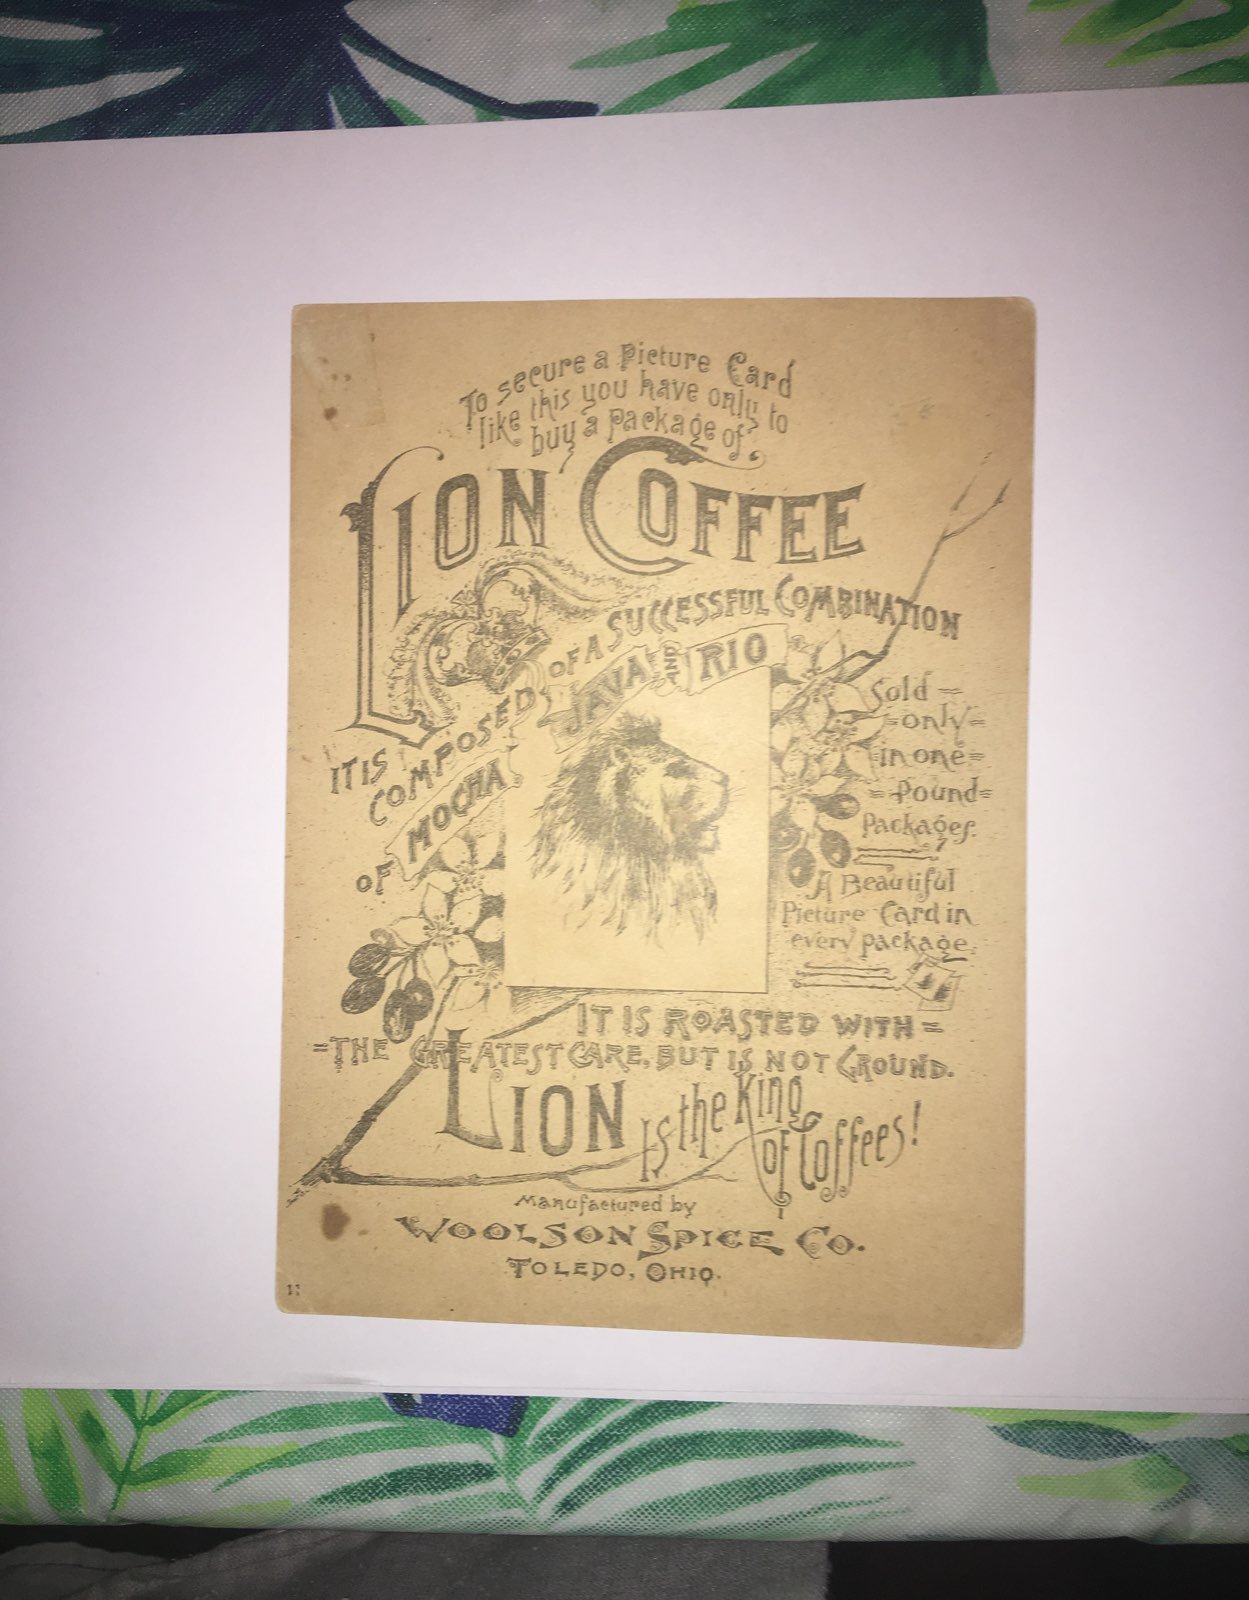 To secure a Picture Card
like this you have only to
buy a Package of
LION COFFEE
IT IS COMPOSED OF A SUCCESSFUL COMBINATION
OF MOCHA JAVA AND RIO
Sold
only
in one
Pound
Packages.
A Beautiful
Picture Card in
every package.
IT IS ROASTED WITH
THE GREATEST CARE, BUT IS NOT GROUND.
LION Is the King of Coffees!
Manufactured by
WOOLSON SPICE CO.
TOLEDO, OHIO.